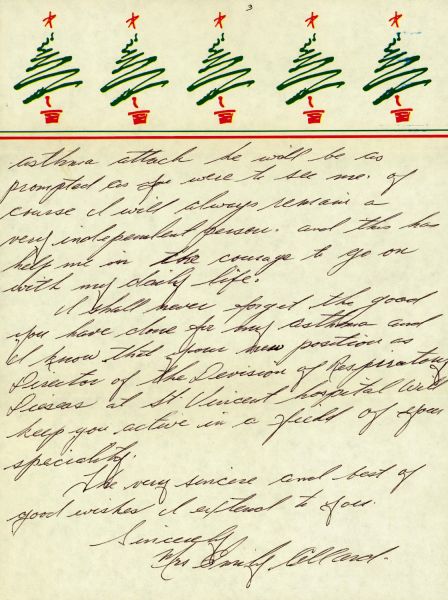 3
asthma attack he will be as
prompted as you were to see me. of
course I will always remain a
very independent person. and this has
help me in the courage to go on
with my daily life.
I shall never forget the good
you have done for my asthma and
I know that your new position as
Director of the Devision of Respiratory
Diseas at St Vincent hospital will
keep you active in a field of your
speciality.
The very sincere and best of
good wishes I extend to you.
Sincerely
Mrs Emily